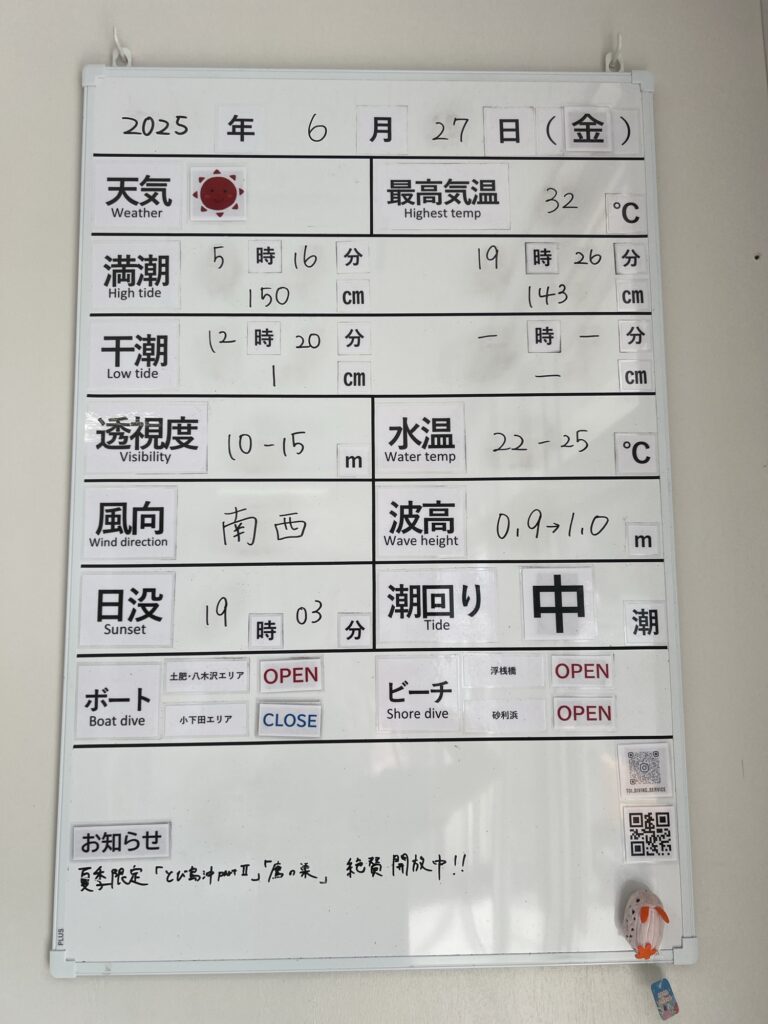 2025 年 6 月 27 日 (金)
天気 最高気温 32 ℃
Weather Highest temp
満潮 5 時 16 分 19 時 26 分
High tide 150 cm 143 cm
干潮 12 時 20 分 一 時 一 分
Low tide 1 cm 一 cm
透視度 10-15 m 水温 22-25 ℃
Visibility Water temp
風向 南西 波高 0.9→1.0 m
Wind direction Wave height
日没 19 時 03 分 潮回り 中 潮
Sunset Tide
ボート 土肥・八木沢エリア OPEN ビーチ 浮桟橋 OPEN
Boat dive 小下田エリア CLOSE Shore dive 砂利浜 OPEN
TOI_DIVING_SERVICE
お知らせ
夏季限定「とび島沖partⅡ」「鷹の巣」 絶賛開放中!!
PLUS